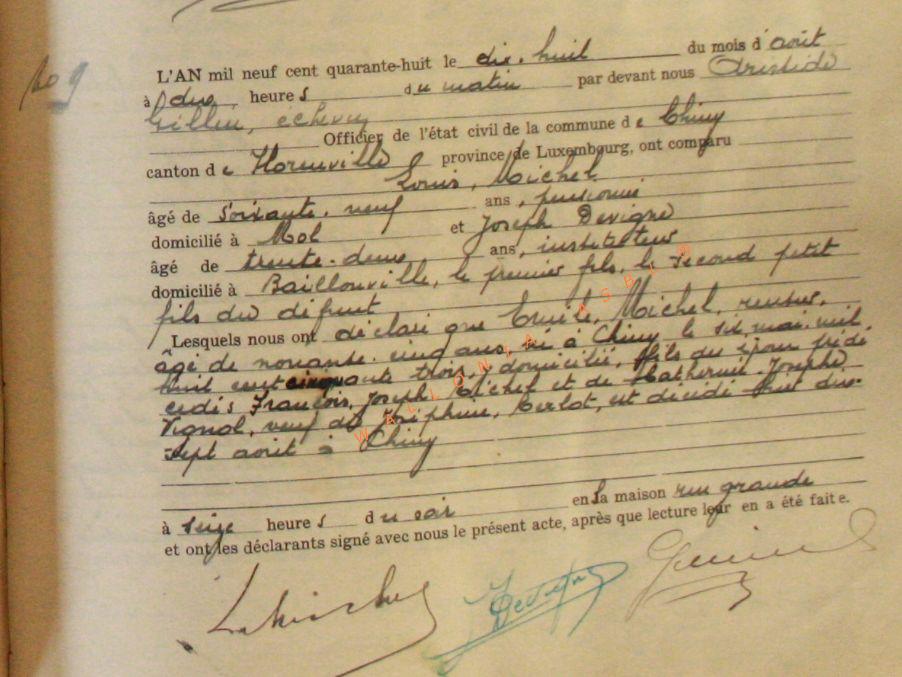 No 9
L'AN mil neuf cent quarante-huit le dix-huit du mois d'août
à dix heures du matin par devant nous Aristide
échevin
Officier de l'état civil de la commune de Chiny
canton de Florenville province de Luxembourg, ont comparu
Louis, Michel
âgé de soixante-neuf ans, pensionné
domicilié à Mol et Joseph Devigne
âgé de trente-deux ans, instituteur
domicilié à Baillonville, le premier fils, le second petit
fils du défunt
Lesquels nous ont déclaré que Emile, Michel, rentier,
âgé de nonante-cinq ans, né à Chiny le six mai mil
huit cent cinquante trois, y domicilié, fils des époux prédé
cédés François, Joseph, Michel et de Catherine-Josephe
Vignol, veuf de Joséphine, Carlot, est décédé hier dix-
sept août à Chiny
à seize heures du soir en la maison rue grande
et ont les déclarants signé avec nous le présent acte, après que lecture leur en a été faite.
L. Michel
J Devigne
WALLONIA ASBL